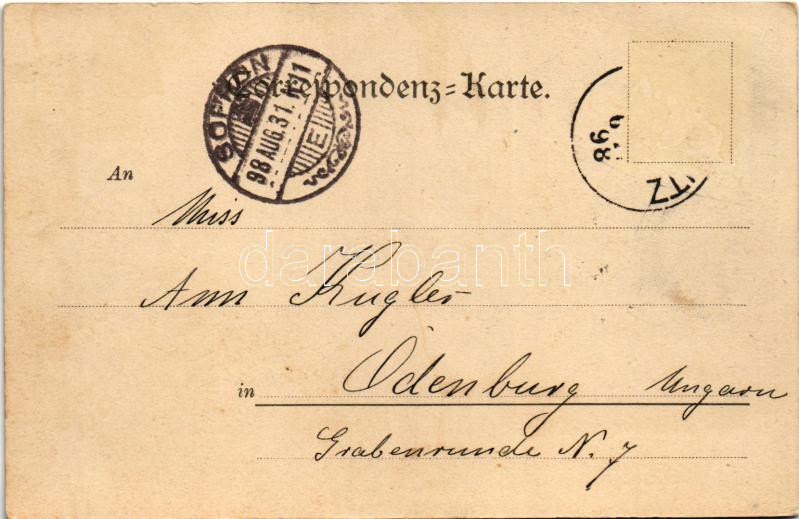 Correspondenz=Karte.
SOPRON
98 AUG. 31.
E
98
TZ
An
Miss
Ann Kugler
in Ödenburg Ungarn
Grabenrunde N. 7
darabanth